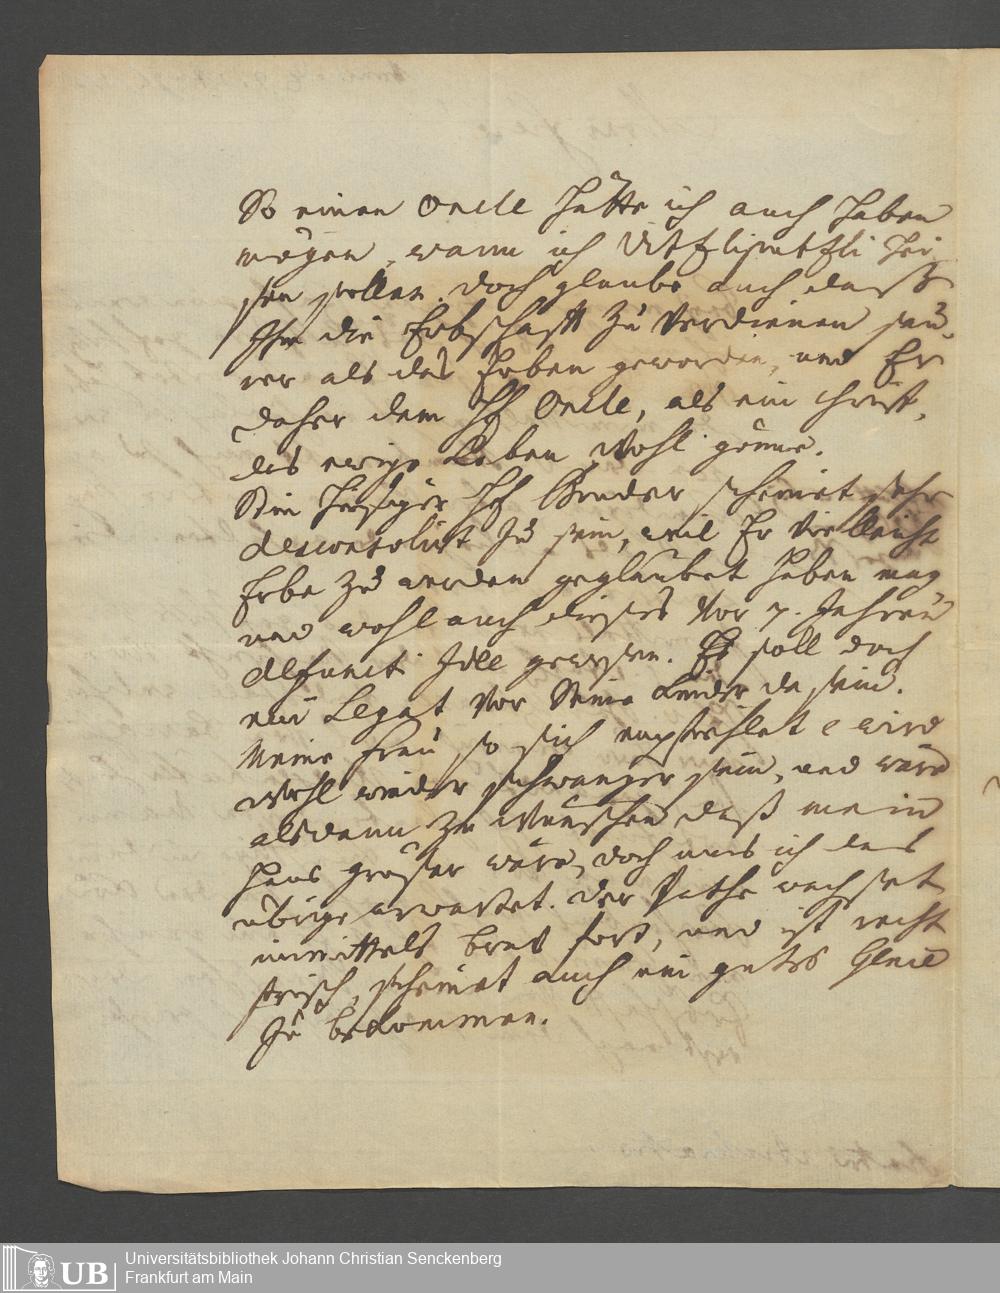 So einen Oncle hätte ich auch haben
mögen, wann ich Vitzliputzli hei-
sen sollen. doch glaube auch daß
Ihm die Erbschafft zu verdienen sau-
rer als das Erben geworden, und Er
daher dem H Oncle, als ein Christ,
das ewige Leben wohl gönne.
Sein hiesiger H Bruder scheinet sehr
zu sein, weil Er vielleicht
Erbe zu werden geglaubet haben mag,
und wohl auch dieses vor 7. Jahren
defuncti Idee gewesen. Es soll doch
ein Legat vor Seine Kinder da sein.
Meine Frau so sich empfehlet wird
wohl wieder schwanger sein, und wäre
alsdann zu wünschen daß mein
Haus größer wäre, doch was ich das
übrige erwartet. der Pathe wachset
inmittels brav fort, und ist recht
frisch, scheinet auch ein gutes
zu bekommen.
Universitätsbibliothek Johann Christian Senckenberg
Frankfurt am Main
UB